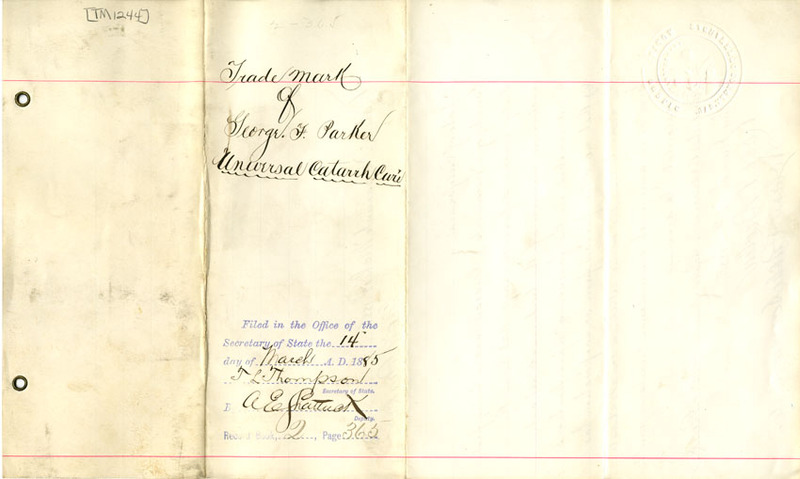 [TM1244]
2-365
Trade Mark
of
George. F. Parker
Universal Catarrh Cure
Filed in the Office of the
Secretary of State the 14
day of March A. D. 1885
T L Thompson
Secretary of State.
A E Shattuck
Deputy.
Record Book, 2, Page 365